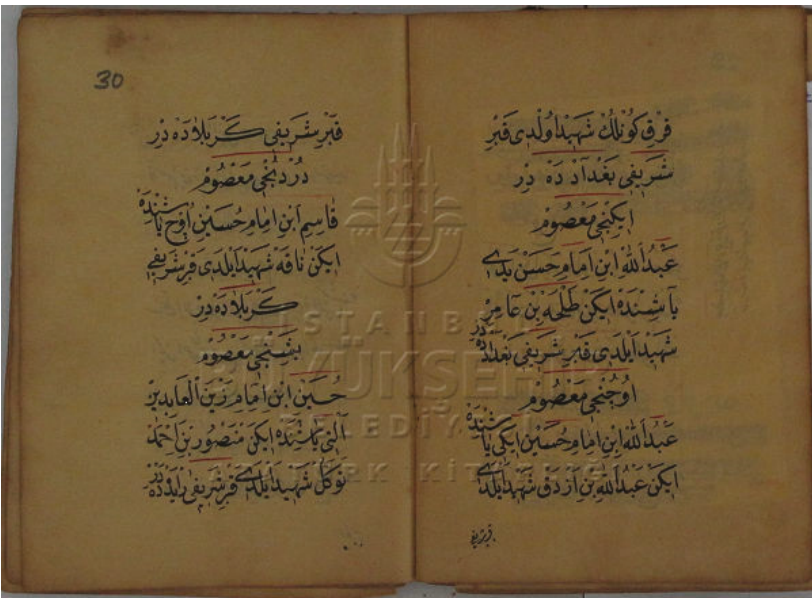 قرق كونلك شهيد اولدى قبر
شريفى بغداد ده در
ايكنجى معصوم
عبد الله ابن امام حسن يدى
ياشنده ايكن طلحه بن عامر
شهيد ايلدى قبر شريفى بغداد ده در
اوچنجى معصوم
عبد الله ابن امام حسين ايكى ياشنده
ايكن عبد الله بن ازدق شهيد ايلدى
قبر شريفى
30
قبر شريفى كربلاده در
دردنجى معصوم
قاسم ابن امام حسين اوچ ياشنده
ايكن ناقه شهيد ايلدى قبر شريفى
كربلاده در
بشنجى معصوم
حسين ابن امام زين العابدين
التى ياشنده ايكن منصور بن احمد
توكل شهيد ايلدى قبر شريفى ده در
İSTANBUL
BÜYÜKŞEHİR
BELEDİYESİ
ATATÜRK KİTAPLIĞI